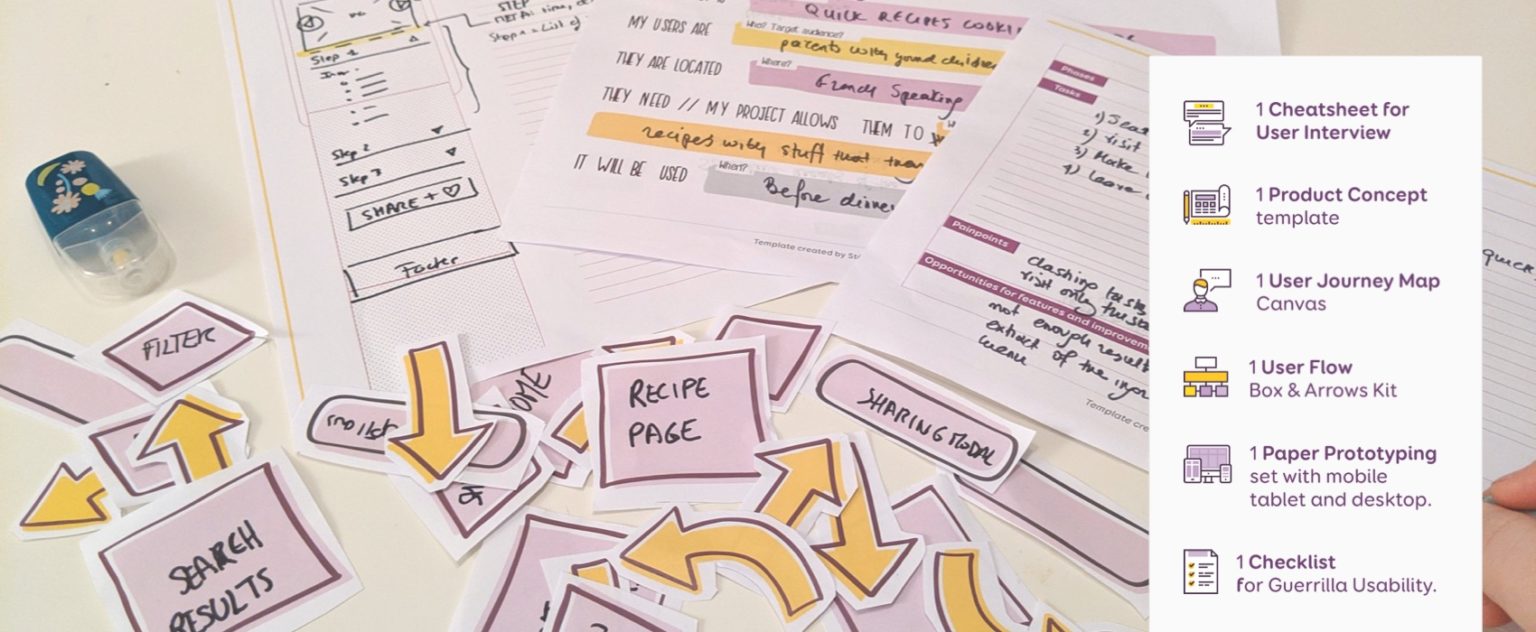 STEP
Step 1
Step 2
Step 3
SHARE +
Footer
QUICK RECIPES
MY USERS ARE
Who? Target audience?
parents with young children
THEY ARE LOCATED
Where?
French Speaking
THEY NEED // MY PROJECT ALLOWS THEM TO
recipes with stuff that
IT WILL BE USED
When?
Before dinner
Template created by
Phases
Tasks
1)
2) Visit
3) Make
4) Leave
Painpoints
clashing
visit only
Opportunities for features and
not enough
extract of the
menu
Template
quick
FILTER
RECIPE
PAGE
SHARING MODAL
SEARCH
RESULTS
1 Cheatsheet for
User Interview
1 Product Concept
template
1 User Journey Map
Canvas
1 User Flow
Box & Arrows Kit
1 Paper Prototyping
set with mobile
tablet and desktop.
1 Checklist
for Guerrilla Usability.